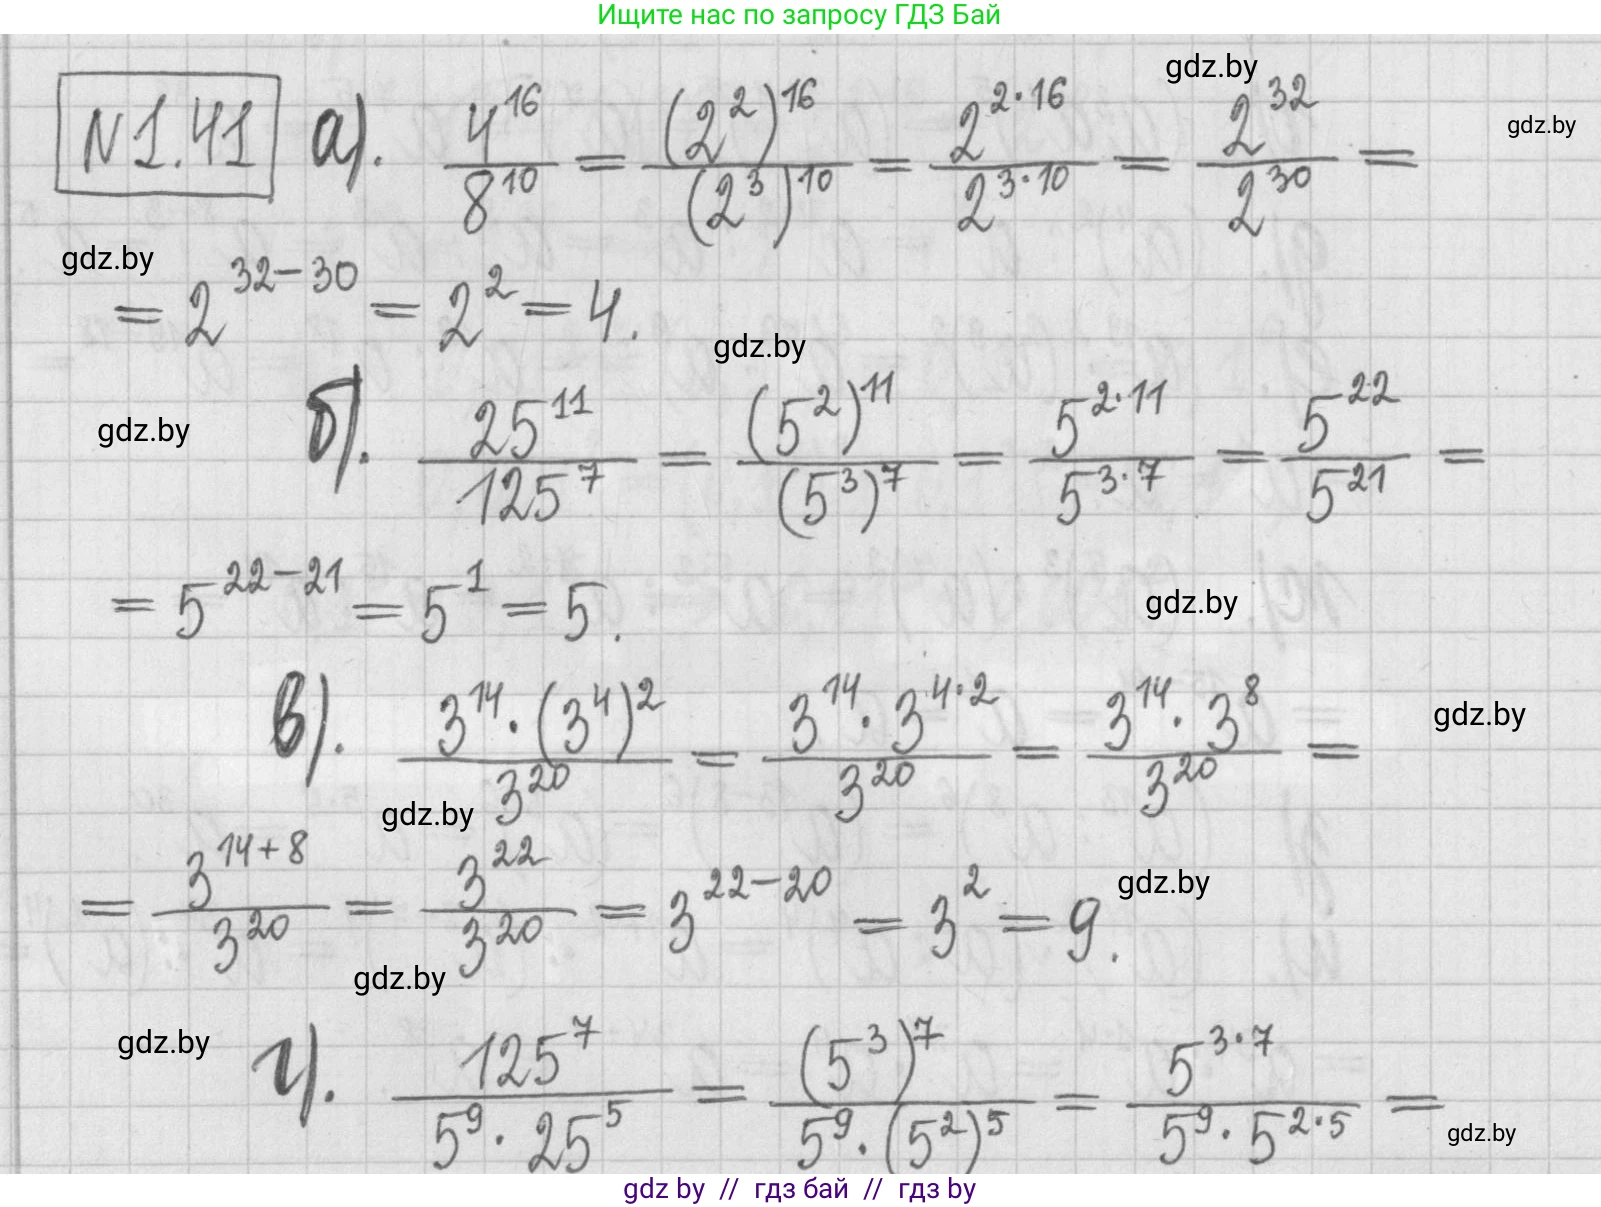 Ищите нас по запросу ГДЗ Бай
gdz.by
gdz.by
N1.41 а). 4^16/8^10 = (2^2)^16/(2^3)^10 = 2^(2·16)/2^(3·10) = 2^32/2^30 =
gdz.by
= 2^(32-30) = 2^2 = 4.
gdz.by
gdz.by
б). 25^11/125^7 = (5^2)^11/(5^3)^7 = 5^(2·11)/5^(3·7) = 5^22/5^21 =
= 5^(22-21) = 5^1 = 5.
gdz.by
в). 3^14·(3^4)^2/3^20 = 3^14·3^(4·2)/3^20 = 3^14·3^8/3^20 =
gdz.by
gdz.by
= 3^(14+8)/3^20 = 3^22/3^20 = 3^(22-20) = 3^2 = 9.
gdz.by
gdz.by
gdz.by
г). 125^7/(5^9·25^5) = (5^3)^7/(5^9·(5^2)^5) = 5^(3·7)/(5^9·5^(2·5)) =
gdz.by
gdz by // гдз бай // гдз by